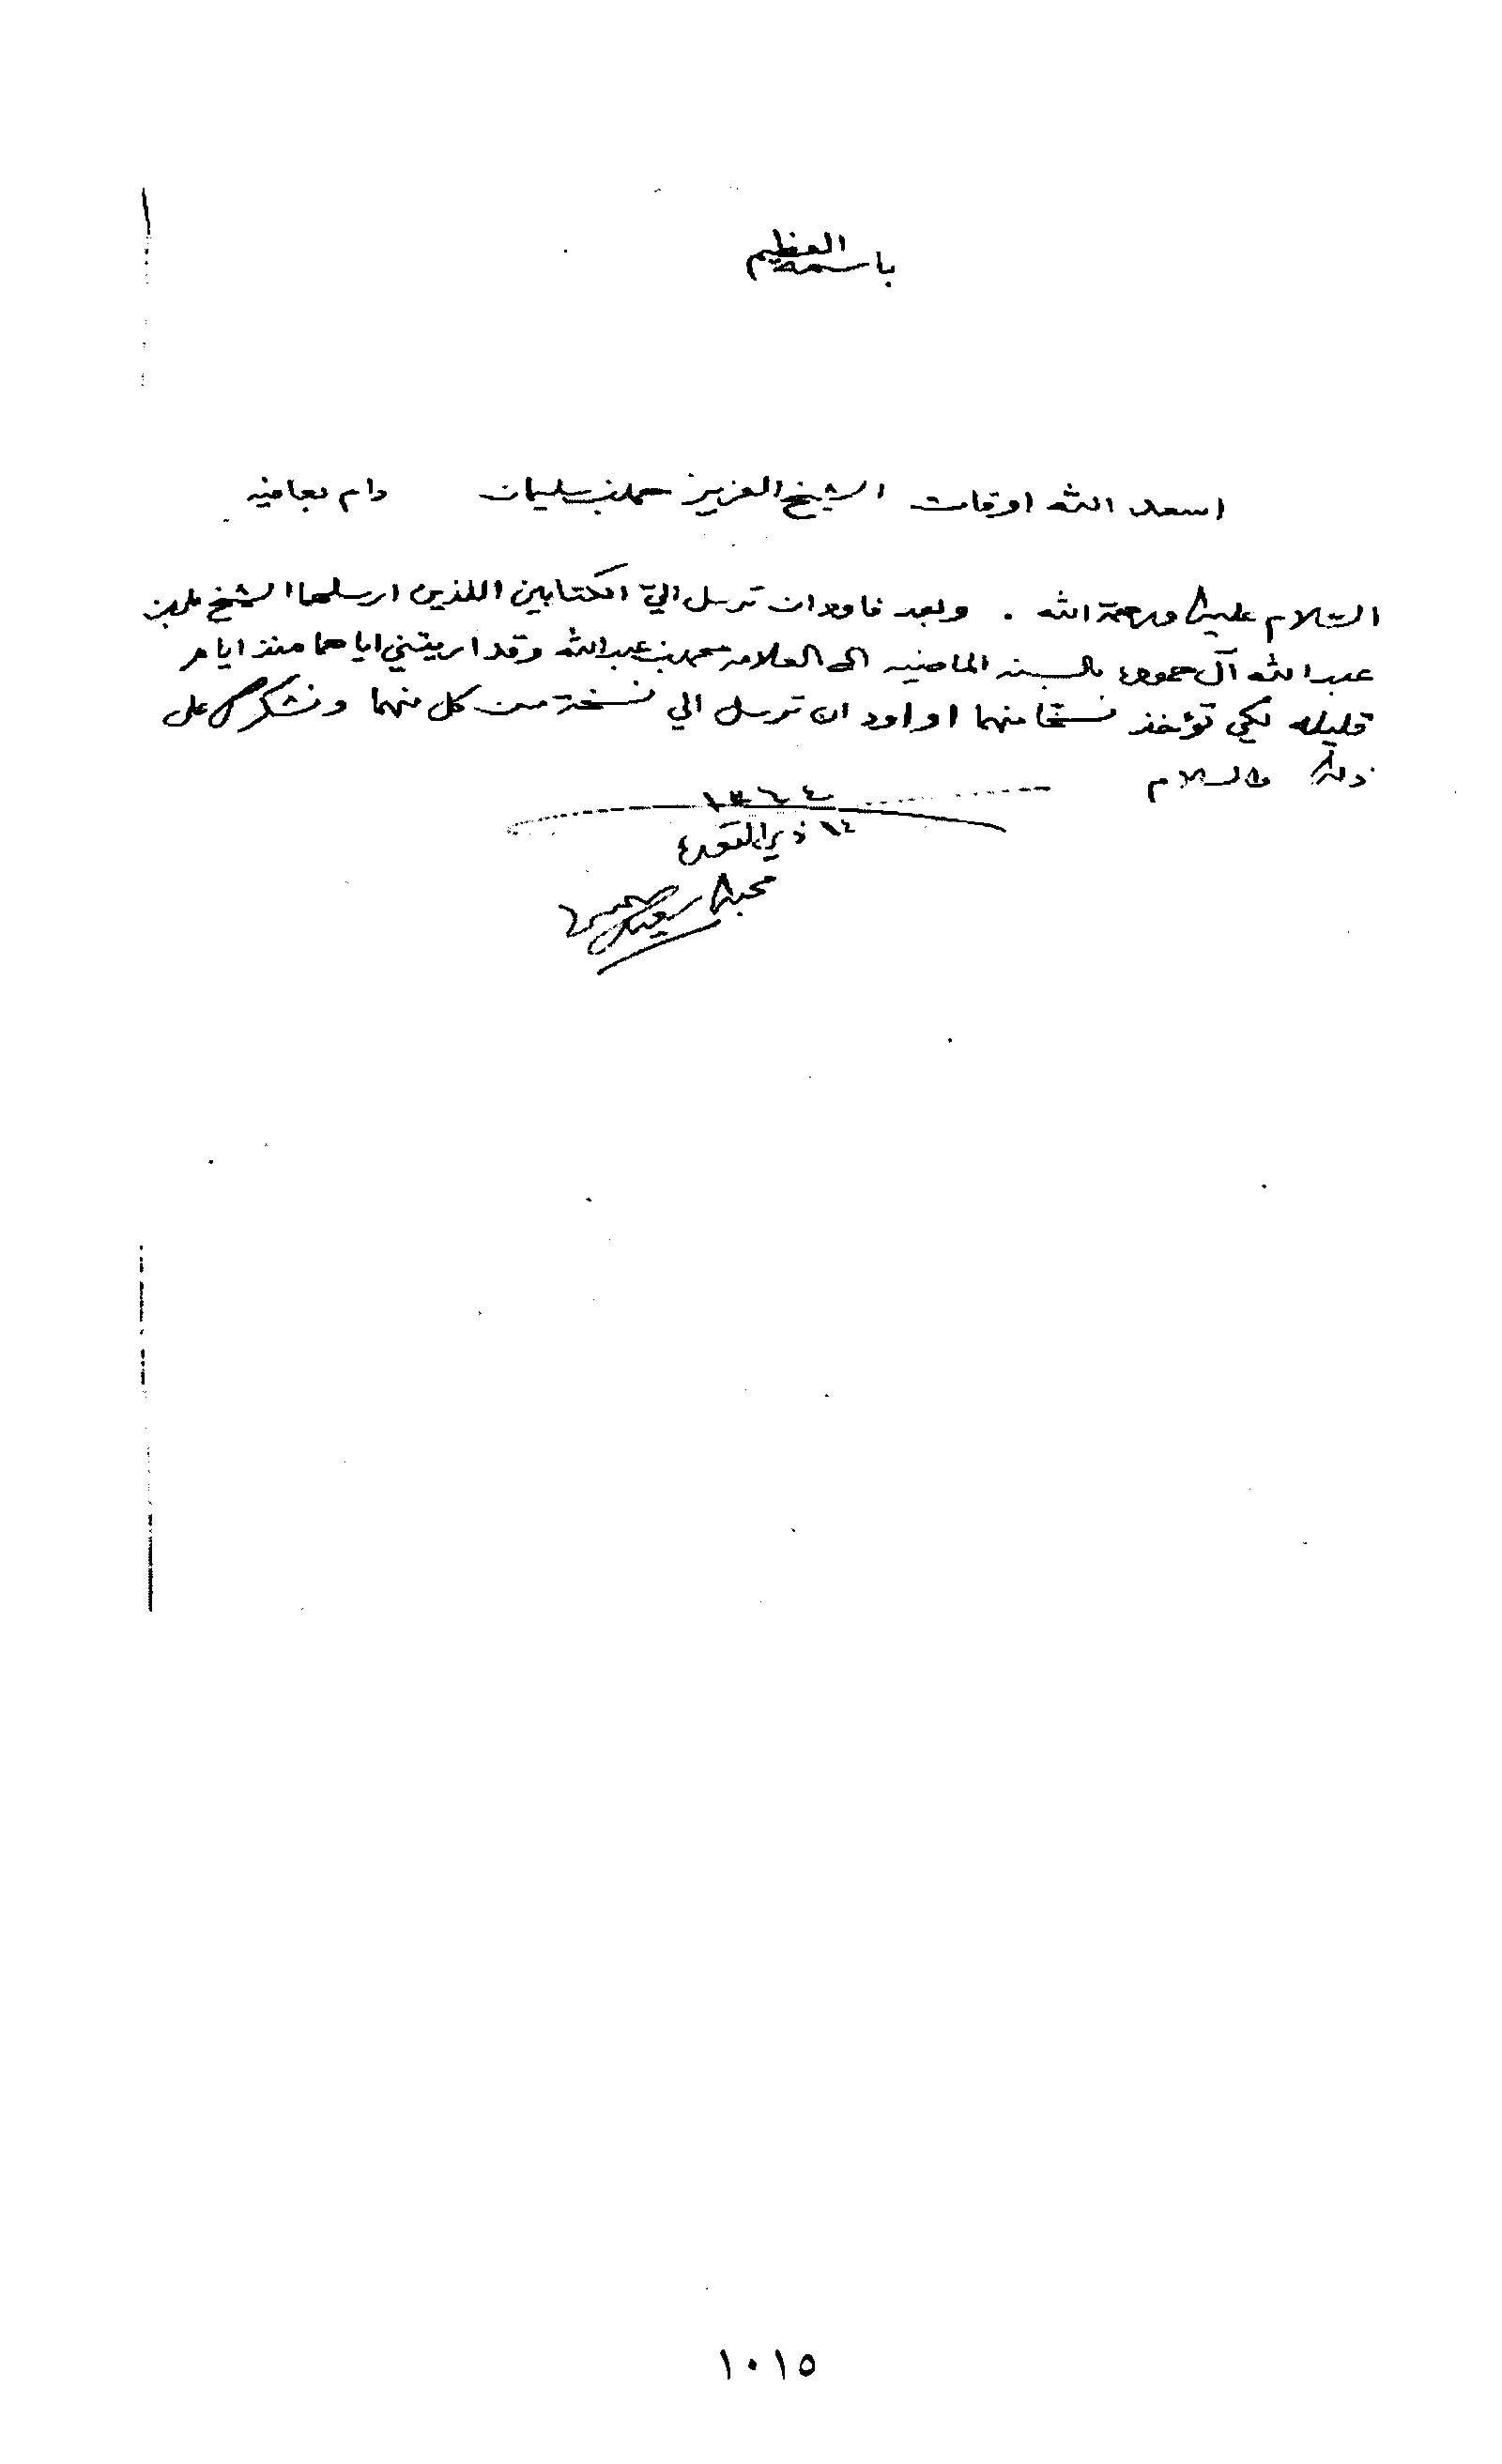 باسمه العظيم
اسعد الله اوقات الشيخ العزيز حمد بن سليمان دام بعافيه
السلام عليك ورحمة الله . وبعد فاود ان ترسل الي الكتابين اللذين ارسلهما الشيخ علي بن
عبدالله آل حموده بالسنه الماضيه الى العلامه محمد بن عبدالله وقد اريتني اياهما منذ ايام
قليله لكي تؤخذ نسخا منهما او اود ان ترسل الي نسخة من كل منهما ونشكرك على
ذلك والسلام
١٣٦٤
١٤ ذي القعده
محبك سعيد
١٠١٥